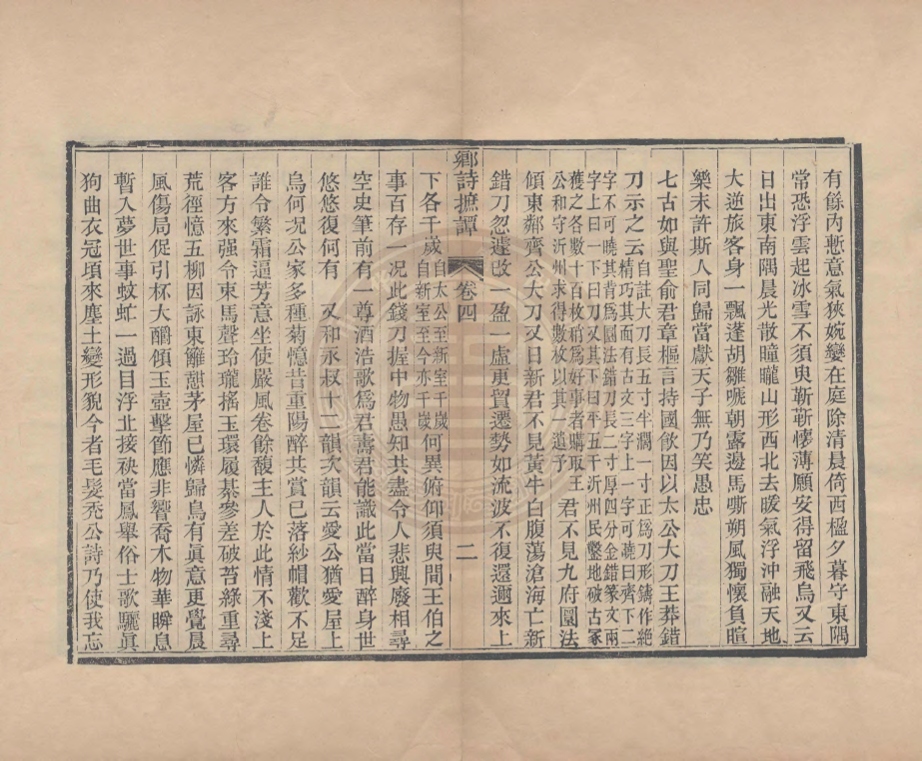 有餘內慙意氣狹婉孌在庭除清晨倚西楹夕暮守東隅
常恐浮雲起冰雪不須臾靳靳懷薄願安得留飛烏又云
日出東南隅晨光散曈曨山形西北去暖氣浮沖融天地
大逆旅客身一飄蓬胡雛嘶朝露邊馬嘶朔風獨懷負暄
樂未許斯人同歸當獻天子無乃笑愚忠
七古如與聖俞君章樞言持國飲因以太公大刀王莽錯
刀示之云
自註大刀長五寸半濶一寸正爲刀形鑄作絕
精巧其面有古文三字上一字可曉曰齊下二
字不可曉其背爲圜法錯刀長二寸厚四分金錯篆文兩
字上曰一下曰刀又其下曰平五千沂州民鑿地破古冢
穫之各數十百枚稍爲好事者購取王
公和守沂州求得數枚以其一遺予
君不見九府圜法
傾東鄰齊公大刀又日新君不見黃牛白腹蕩滄海亡新
錯刀忽遽改一盈一虛更貿遷勢如流波不復還邇來上
鄉詩摭譚
卷四
二
下各千歲
自太公至新室千歲
自新室至今亦千歲
何異俯仰須臾間王伯之
事百存一况此錢刀握中物愚知共盡令人悲興廢相尋
空史筆前有一尊酒浩歌爲君壽君能識此當日醉身世
悠悠復何有
又和永叔十二韻次韻云愛公猶愛屋上
烏何况公家多種菊憶昔重陽醉共賞已落紗帽歡不足
誰令繁霜逼芳意坐使嚴風卷餘馥主人於此情不淺上
客方來强令束馬聲玲瓏搖玉環履綦參差破苔綠重尋
荒徑憶五柳因詠東籬憇茅屋已憐歸鳥有眞意更覺晨
風傷局促引杯大釂傾玉壺擊節應非響喬木物華瞬息
暫入夢世事蚊虻一過目浮北接袂當鳳舉俗士歌驪眞
狗曲衣冠頃來塵土變形貌今者毛髮禿公詩乃使我忘